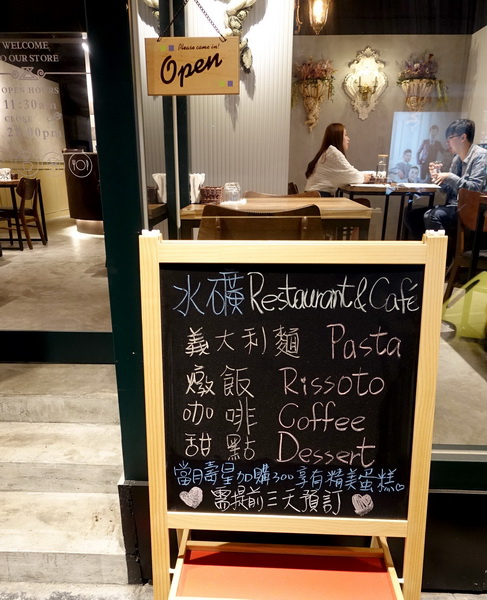 WELCOME
TO OUR STORE
OPEN HOURS
11:30am
CLOSE
Please come in!
Open
水礦 Restaurant & Café
義大利麵 Pasta
燉飯 Rissoto
咖啡 Coffee
甜點 Dessert
當月壽星加購300享有精美蛋糕
需提前三天預訂